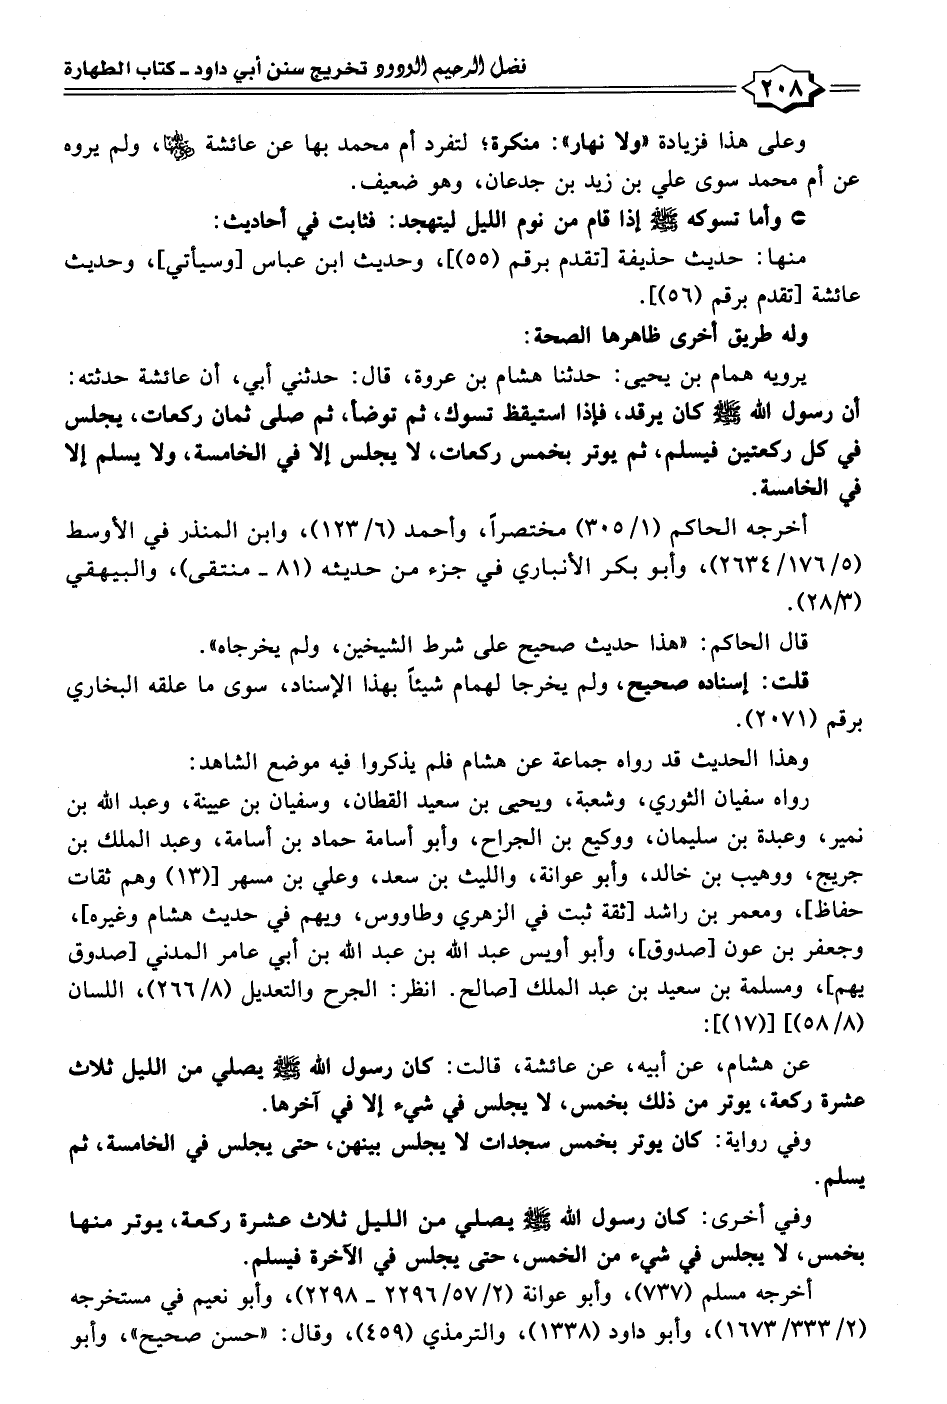 فضل الرحيم الودود تخريج سنن أبي داود - كتاب الطهارة
٢٠٨
وعلى هذا فزيادة «ولا نهار»: منكرة؛ لتفرد أم محمد بها عن عائشة رضي الله عنها، ولم يروه
عن أم محمد سوى علي بن زيد بن جدعان، وهو ضعيف.
وأما تسوكه ﷺ إذا قام من نوم الليل ليتهجد: فثابت في أحاديث:
منها: حديث حذيفة [تقدم برقم (٥٥)]، وحديث ابن عباس [وسيأتي]، وحديث
عائشة [تقدم برقم (٥٦)].
وله طريق أخرى ظاهرها الصحة:
يرويه همام بن يحيى: حدثنا هشام بن عروة، قال: حدثني أبي، أن عائشة حدثته:
أن رسول الله ﷺ كان يرقد، فإذا استيقظ تسوك، ثم توضأ، ثم صلى ثمان ركعات، يجلس
في كل ركعتين فيسلم، ثم يوتر بخمس ركعات، لا يجلس إلا في الخامسة، ولا يسلم إلا
في الخامسة.
أخرجه الحاكم (١/ ٣٠٥) مختصراً، وأحمد (٦/ ١٢٣)، وابن المنذر في الأوسط
(٥/ ١٧٦/ ٢٦٣٤)، وأبو بكر الأنباري في جزء من حديثه (٨١ - منتقى)، والبيهقي
(٣/ ٢٨).
قال الحاكم: «هذا حديث صحيح على شرط الشيخين، ولم يخرجاه».
قلت: إسناده صحيح، ولم يخرجا لهمام شيئاً بهذا الإسناد، سوى ما علقه البخاري
برقم (٢٠٧١).
وهذا الحديث قد رواه جماعة عن هشام فلم يذكروا فيه موضع الشاهد:
رواه سفيان الثوري، وشعبة، ويحيى بن سعيد القطان، وسفيان بن عيينة، وعبد الله بن
نمير، وعبدة بن سليمان، ووكيع بن الجراح، وأبو أسامة حماد بن أسامة، وعبد الملك بن
جريج، ووهيب بن خالد، وأبو عوانة، والليث بن سعد، وعلي بن مسهر [(١٣) وهم ثقات
حفاظ]، ومعمر بن راشد [ثقة ثبت في الزهري وطاووس، ويهم في حديث هشام وغيره]،
وجعفر بن عون [صدوق]، وأبو أويس عبد الله بن عبد الله بن أبي عامر المدني [صدوق
يهم]، ومسلمة بن سعيد بن عبد الملك [صالح. انظر: الجرح والتعديل (٨/ ٢٦٦)، اللسان
(٨/ ٥٨)] [(١٧)]:
عن هشام، عن أبيه، عن عائشة، قالت: كان رسول الله ﷺ يصلي من الليل ثلاث
عشرة ركعة، يوتر من ذلك بخمس، لا يجلس في شيء إلا في آخرها.
وفي رواية: كان يوتر بخمس سجدات لا يجلس بينهن، حتى يجلس في الخامسة، ثم
يسلم.
وفي أخرى: كان رسول الله ﷺ يصلي من الليل ثلاث عشرة ركعة، يوتر منها
بخمس، لا يجلس في شيء من الخمس، حتى يجلس في الآخرة فيسلم.
أخرجه مسلم (٧٣٧)، وأبو عوانة (٢/ ٥٧/ ٢٢٩٦ - ٢٢٩٨)، وأبو نعيم في مستخرجه
(٢/ ٣٣٣/ ١٦٧٣)، وأبو داود (١٣٣٨)، والترمذي (٤٥٩)، وقال: «حسن صحيح»، وأبو